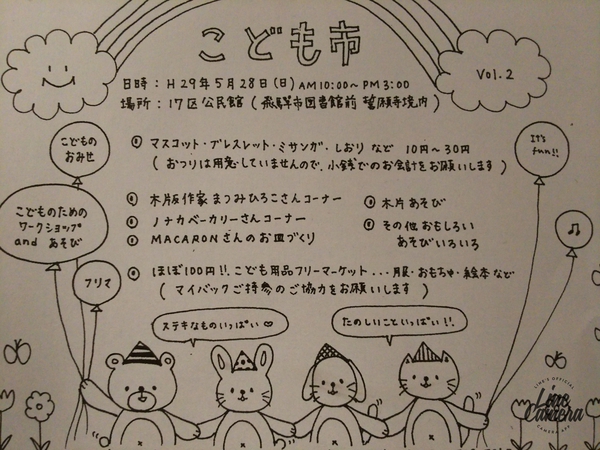 こども市
Vol.2
日時：H29年5月28日(日) AM10:00～PM3:00
場所：17区公民館(飛騨市図書館前 誓願寺境内)
こどもの
おみせ
マスコット・ブレスレット・ミサンガ・しおり など 10円～30円
(おつりは用意していませんので、小銭でのお会計をお願いします)
It's
fun!!
こどものための
ワークショップ
and あそび
木版作家まつみひろこさんコーナー
ノナカベーカリーさんコーナー
MACARONさんのお皿づくり
木片あそび
その他おもしろい
あそびいろいろ
フリマ
ほぼ100円!!こども用品フリーマーケット...服・おもちゃ・絵本など
(マイバックご持参のご協力をお願いします)
ステキなものいっぱい♡
たのしいこといっぱい!!
LINE'S OFFICIAL
Line
Camera
CAMERA APP